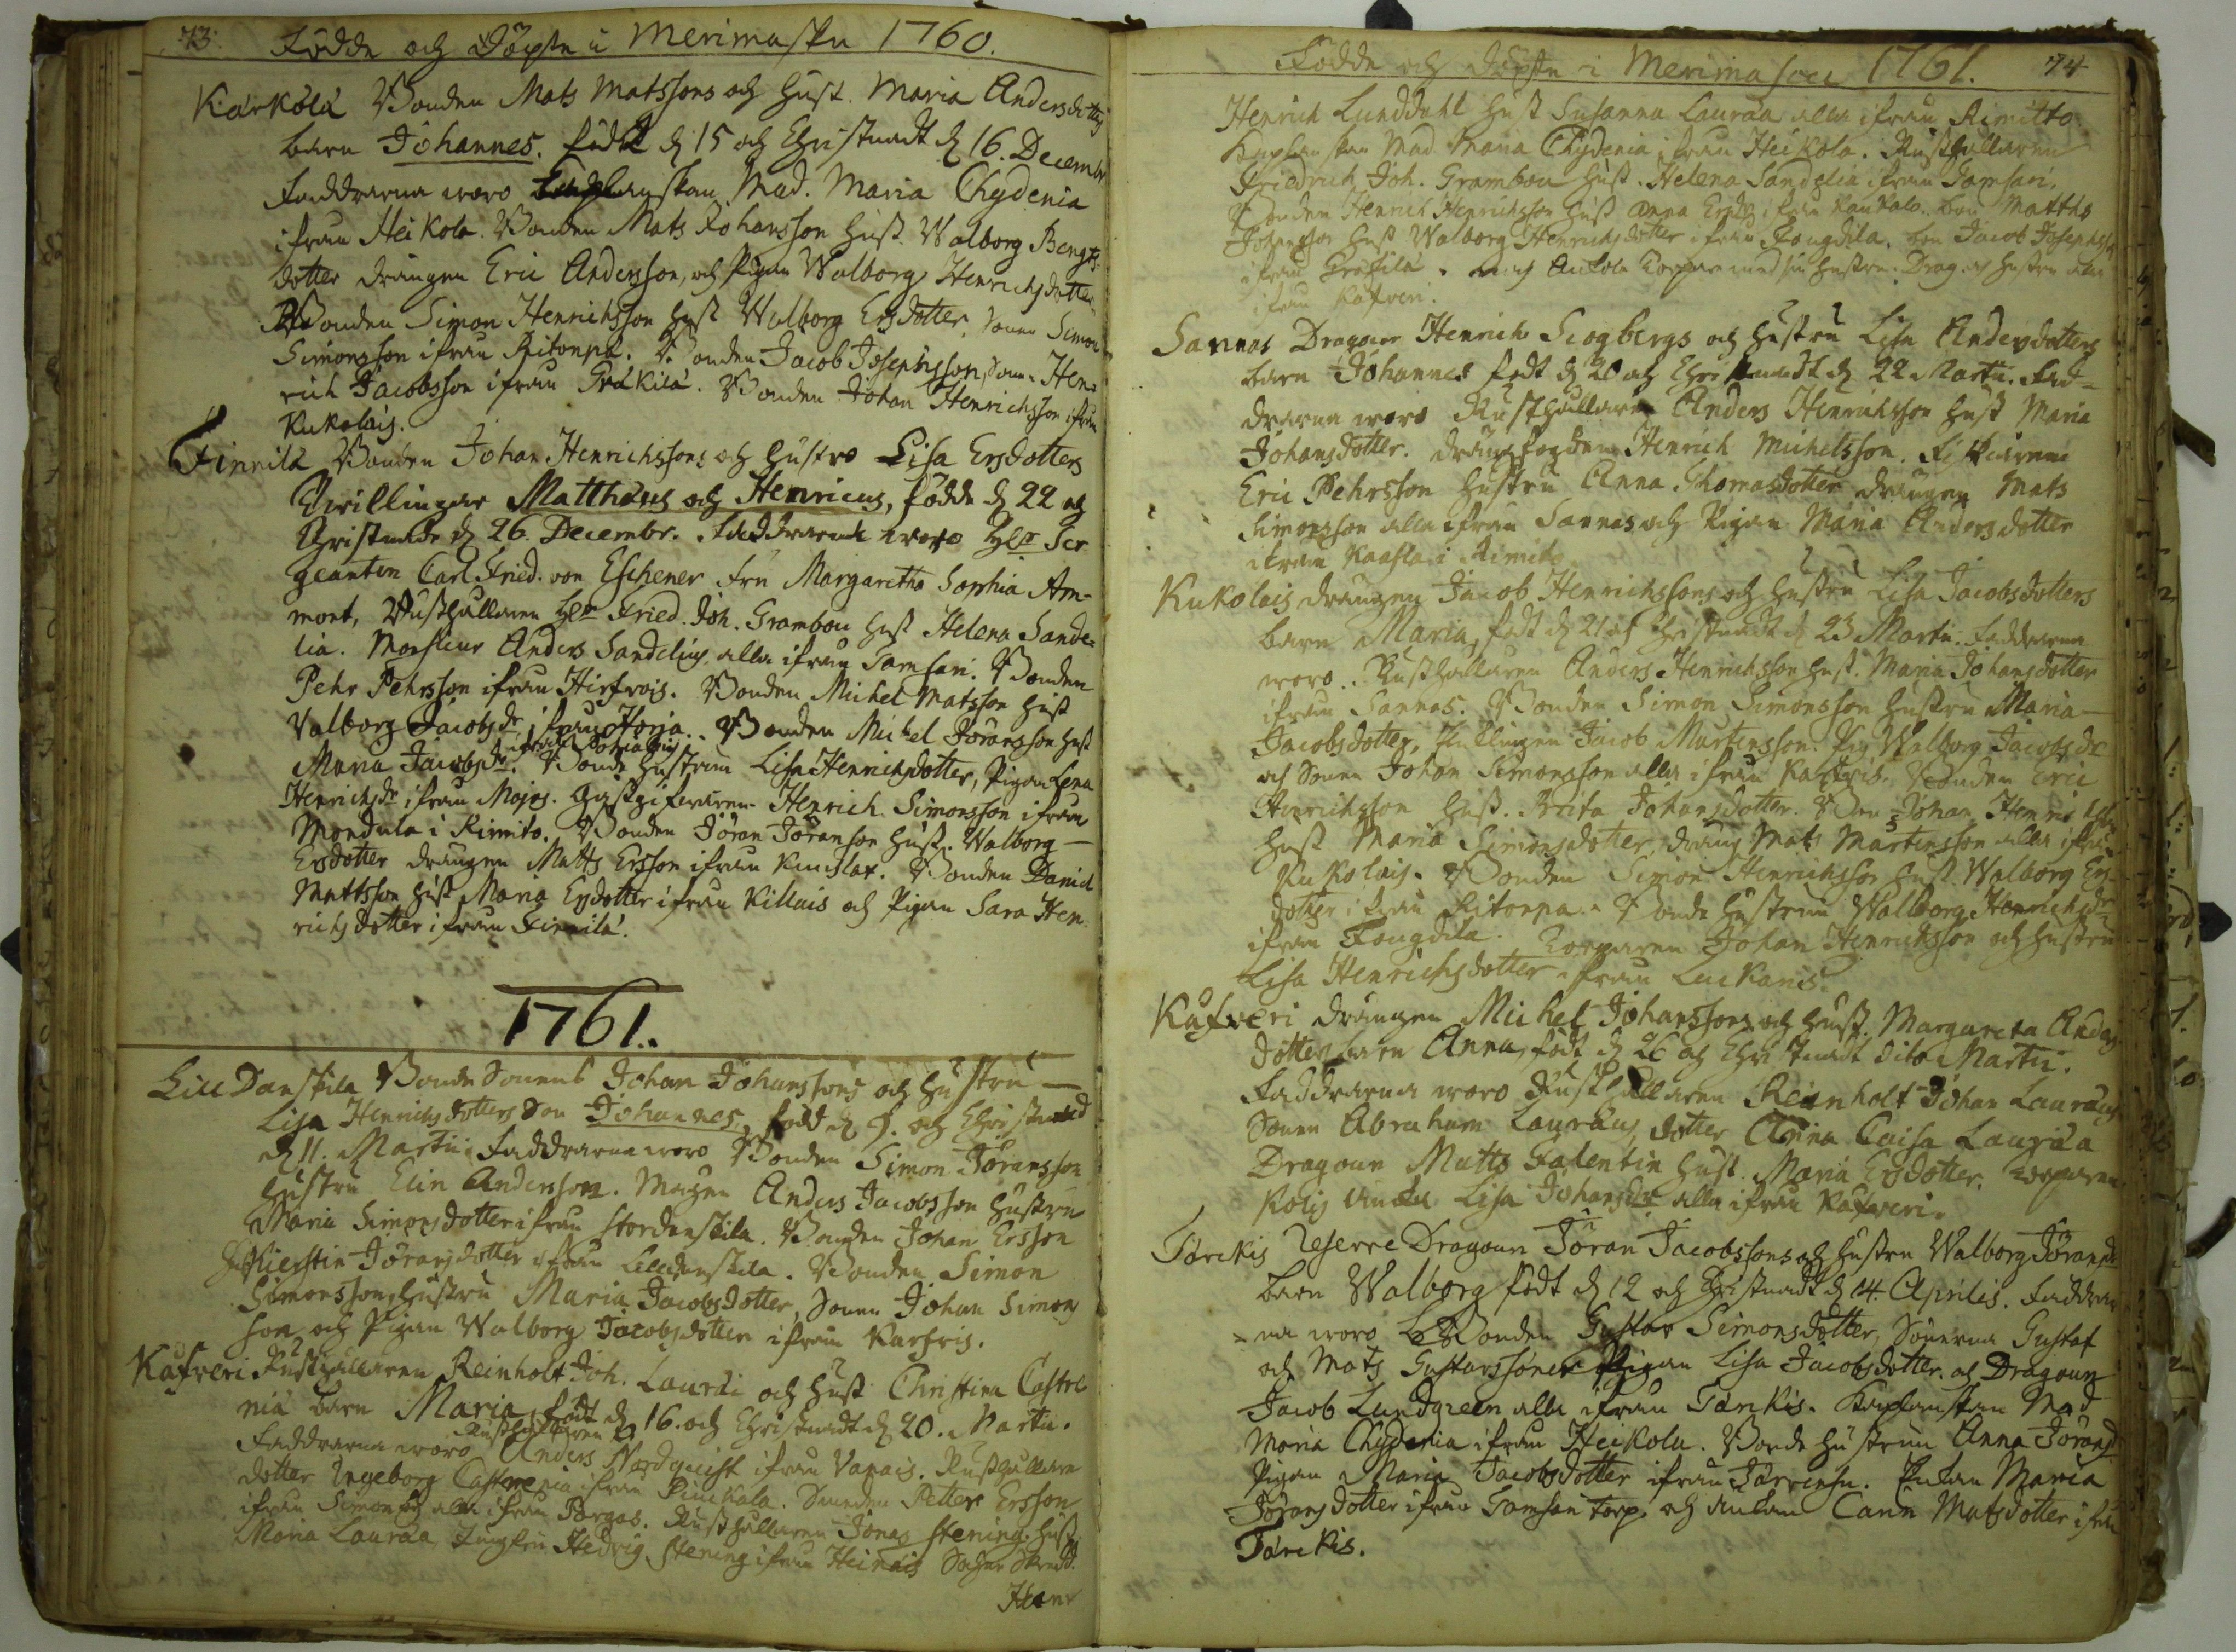 73.
Födde och Döpte i Merimasku 1760.
Kärkölä Bonden Mats Matssons och Hust. Maria Andersdotters
barn Johannes. född d. 15 och Christnadt d. 16. Decembr
Faddrarna woro Caplanskan Mad. Maria Chydenia
ifrån Heikola. Bonden Mats Johansson Hust. Walborg Bengts
dotter drängen Eric Andersson, och Pigan Walborg Henrichsdotter
Bonden Simon Henrichsson Hust Walborg Ersdotter. Sonen Simon
Simonsson ifrån Ritonpä. Bonden Jacob Josephsson, Son. Hen-
rich Jacobsson ifrån Gräkilä. Bonden Johan Henrichsson ifrån
Kukolais.
Finnilä Bonden Johan Henrichssons och Hustro Lisa Ersdotters
Twillingar Matthæus och Henricus, födde d. 22 och
Christnade d. 26. Decembr. Faddrarna woro Hr Ser
geanten Carl Fried. von Eschener Fru Margaretha Sophia Am-
mont, Rusthållaren Hr Fried. Joh. Grambou Hust Helena Sande-
lia. Monsieur Anders Sandelius alla ifrån Samsari. Bonden
Pehr Pehrsson ifrån Hirfvois. Bonden Michel Matsson Hust
Valborg Jacobsdr ifrån Korja. Bonden Michel Jöransson Hust
Maria Jacobsdr. Bonde Hustrun Lisa Henrichsdotter, Pigan Lena
Henrichsdr ifrån Mojos. Gästgifwaren Henrich Simonsson ifrån
Mondula i Rimito. Bonden Jöran Jöransson Hust. Walborg
Ersdotter drängen Matts Ersson ifrån Kuuslax. Bonden Daniel
Mattsson Hust Maria Ersdotter ifrån Killais och Pigan Sara Hen
richsdotter ifrån Finnilä.
1761.
Lill Danskila Bonde Sonens Johan Johanssons och Hustru
Lisa Henrichsdotters Son Johannes, född d. 9. och Christnad
d. 11. Martii. Faddrarna woro Bonden Simon Jöransson
Hustru Elin Anderson. Mågen Anders Jacobsson Hustru
Maria Simonsdotter ifrån Stordanskila. Bonden Johan Ersson
Kierstin Jöransdotter ifrån Lilldanskila. Bonden Simon
Simonsson, Hustru Maria Jacobsdotter, Sonen Johan Simons
son och Pigan Walborg Jacobsdotter ifrån Karfris.
Kåfveri Rusthållaren Reinholt Joh. Lauræi och Hust. Christina Castre
nia barn Maria, född d. 16. och Christnadt d. 20. Martii.
Faddrarna woro Rusthållaren Anders Nordquist ifrån Vanais. Rusthållare
dotter Ingeborg Castrenia ifrån Piuckala. Petter Ersson
ifrån Simon alla ifrån Pargas. Rusthållaren Jonas Stening, Hust
Maria Lauræa Jungfru Hedvig Stening ifrån Heinäis
Henr
Födde och Döpte i Merimasku 1761.
74
Henrich Lunddahl Hust Susanna Lauræa alla ifrån Rimitto
Caplanskan Mad. Maria Chydenia ifrån Heikola. Rusthållaren
Friedrich Joh. Grambou Hust. Helena Sandelia ifrån Samsari.
Bonden Henrich Henrichsson Hust Anna Ersdr ifrån Matths
Johansson Hust Walborg Henrichsdotter ifrån Fougdila. bon Jacob Josephsson
ifrån Gräkilä.
ifrån Kåfveri.
Sannas Dragoun Henrich Scogbergs och Hustru Lisa Andersdotters
barn Johannes födt d. 20 och Christnadt d. 22 Martii. Fad-
drarna woro Rusthållaren Anders Henrichsson Hust Maria
Johansdotter. Henrich Michelsson.
Eric Pehrsson Hustru Anna Thomasdotter drängen Mats
Simonsson alla ifrån Sannas och Pigan Maria Andersdotter
ifrån i Rimito
Kukolais drängen Jacob Henrichssons och Hustru Lisa Jacobsdotters
barn Maria, födt d. 21 och Christnadt d. 23 Martii. Faddrarna
woro. Rusthållaren Anders Henrichsson Hust. Maria Johansdotter
ifrån Sannas. Bonden Simon Simonsson Hustru Maria
Jacobsdotter, Jacob Martensson. Pig. Walborg Jacobsdr
och Sonen Johan Simonsson alla ifrån Karfris. Bonden Eric
Henrichsson Hust. Brita Johansdotter. Johan Henrichss
Hust Maria Simonsdotter, dräng Mats Martensson alla ifrån
Kukolais. Bonden Simon Henrichsson Hust Walborg Ers
dotter ifrån Ritonpä. Bonde Hustrun Walborg Henrichsdr
ifrån Fougdila. Torparen Johan Henrichsson och Hustru
Lisa Henrichsdotter ifrån Luckaris.
Kåfveri drängen Michel Johanssons och Hust. Margareta Anders
dotters barn Anna, född d. 26 och Christnadt dito Martii.
Faddrarna woro Rusthållaren Reinholt Johan Lauræus
Sonen Abraham Lauræus, dotter Anna Caisa Lauræa
Dragoun Matts Falentin Hust Maria Ersdotter. Torparen
Lisa Johansdr alla ifrån Kåfveri.
Tärckis Reserve Dragoun Jöran Jacobssons och Hustru Walborg Jöransdr
barn Walborg födt d. 12 och Christnadt d. 14. Aprilis. Faddrar
-na woro Bonden Gustav Simonsdotter, Sönerna Gustaf
och Mats Gustavssöner Pigan Lisa Jacobsdotter. och Dragoun
Jacob Lundgreen alla ifrån Tärckis. Caplanskan Mad
Maria Chydenia ifrån Heikola. Bonde Hustrun Anna Jöransdr
Pigan Maria Jacobsdotter ifrån Järvensu. Enkan Maria
Jöransdotter ifrån Samsari torp, och Carin Matsdotter ifrån
Tärckis.